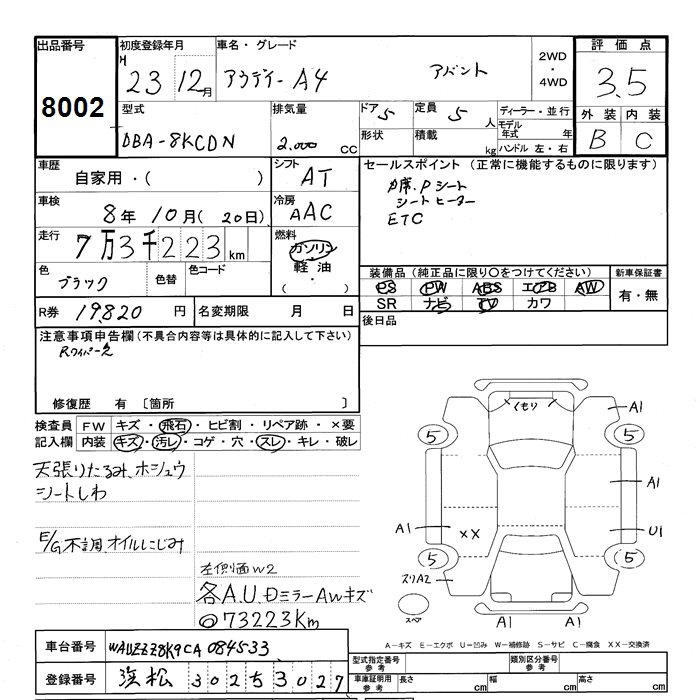 出品番号
8002
初度登録年月
H 23 12月
車名・グレード
アウディー A4 アバント
2WD
・
4WD
評価点
3.5
外装 内装
B C
型式
DBA-8KCDN
排気量
2.000 cc
ドア 5
形状
定員 5 人
積載 kg
ディーラー・並行
モデル年式 年
ハンドル 左・右
車歴
自家用・( )
シフト
AT
車検
8年 10月(20日)
冷房
AAC
走行
7万3千223km
燃料
ガソリン
軽油
・
( )
色
ブラック
色替
色コード
R券 19,820 円
名変期限 月 日
セールスポイント (正常に機能するものに限ります)
カ席.Pシート
シートヒーター
ETC
装備品 (純正品に限り〇をつけてください)
PS PW ABS エアB AW
SR ナビ TV カワ
新車保証書
有・無
後日品
注意事項申告欄(不具合内容等は具体的に記入して下さい)
Rワイパー欠
修復歴 有 〔箇所 〕
検査員記入欄
FW キズ・飛石・ヒビ割・リペア跡・×要
内装 キズ・汚レ・コゲ・穴・スレ・キレ・破レ
天張りたるみ、ホシュウ
シートしわ
E/G不調 オイルにじみ
左側面W2
各A.U、Dミラー AWキズ
◎73223Km
くもり
A1
5 5
A1
A1 XX U1
5 5
スリA2
スペア
A1 A1
A－キズ E－エクボ U－凹み W－補修跡 S－サビ C－腐食 XX－交換済
車台番号 WAUZZZ8K9CA084533
登録番号 浜松 302 5 3027
型式指定番号 参考
類別区分番号 参考
車庫証明用 参考
長さ cm
幅 cm
高さ cm